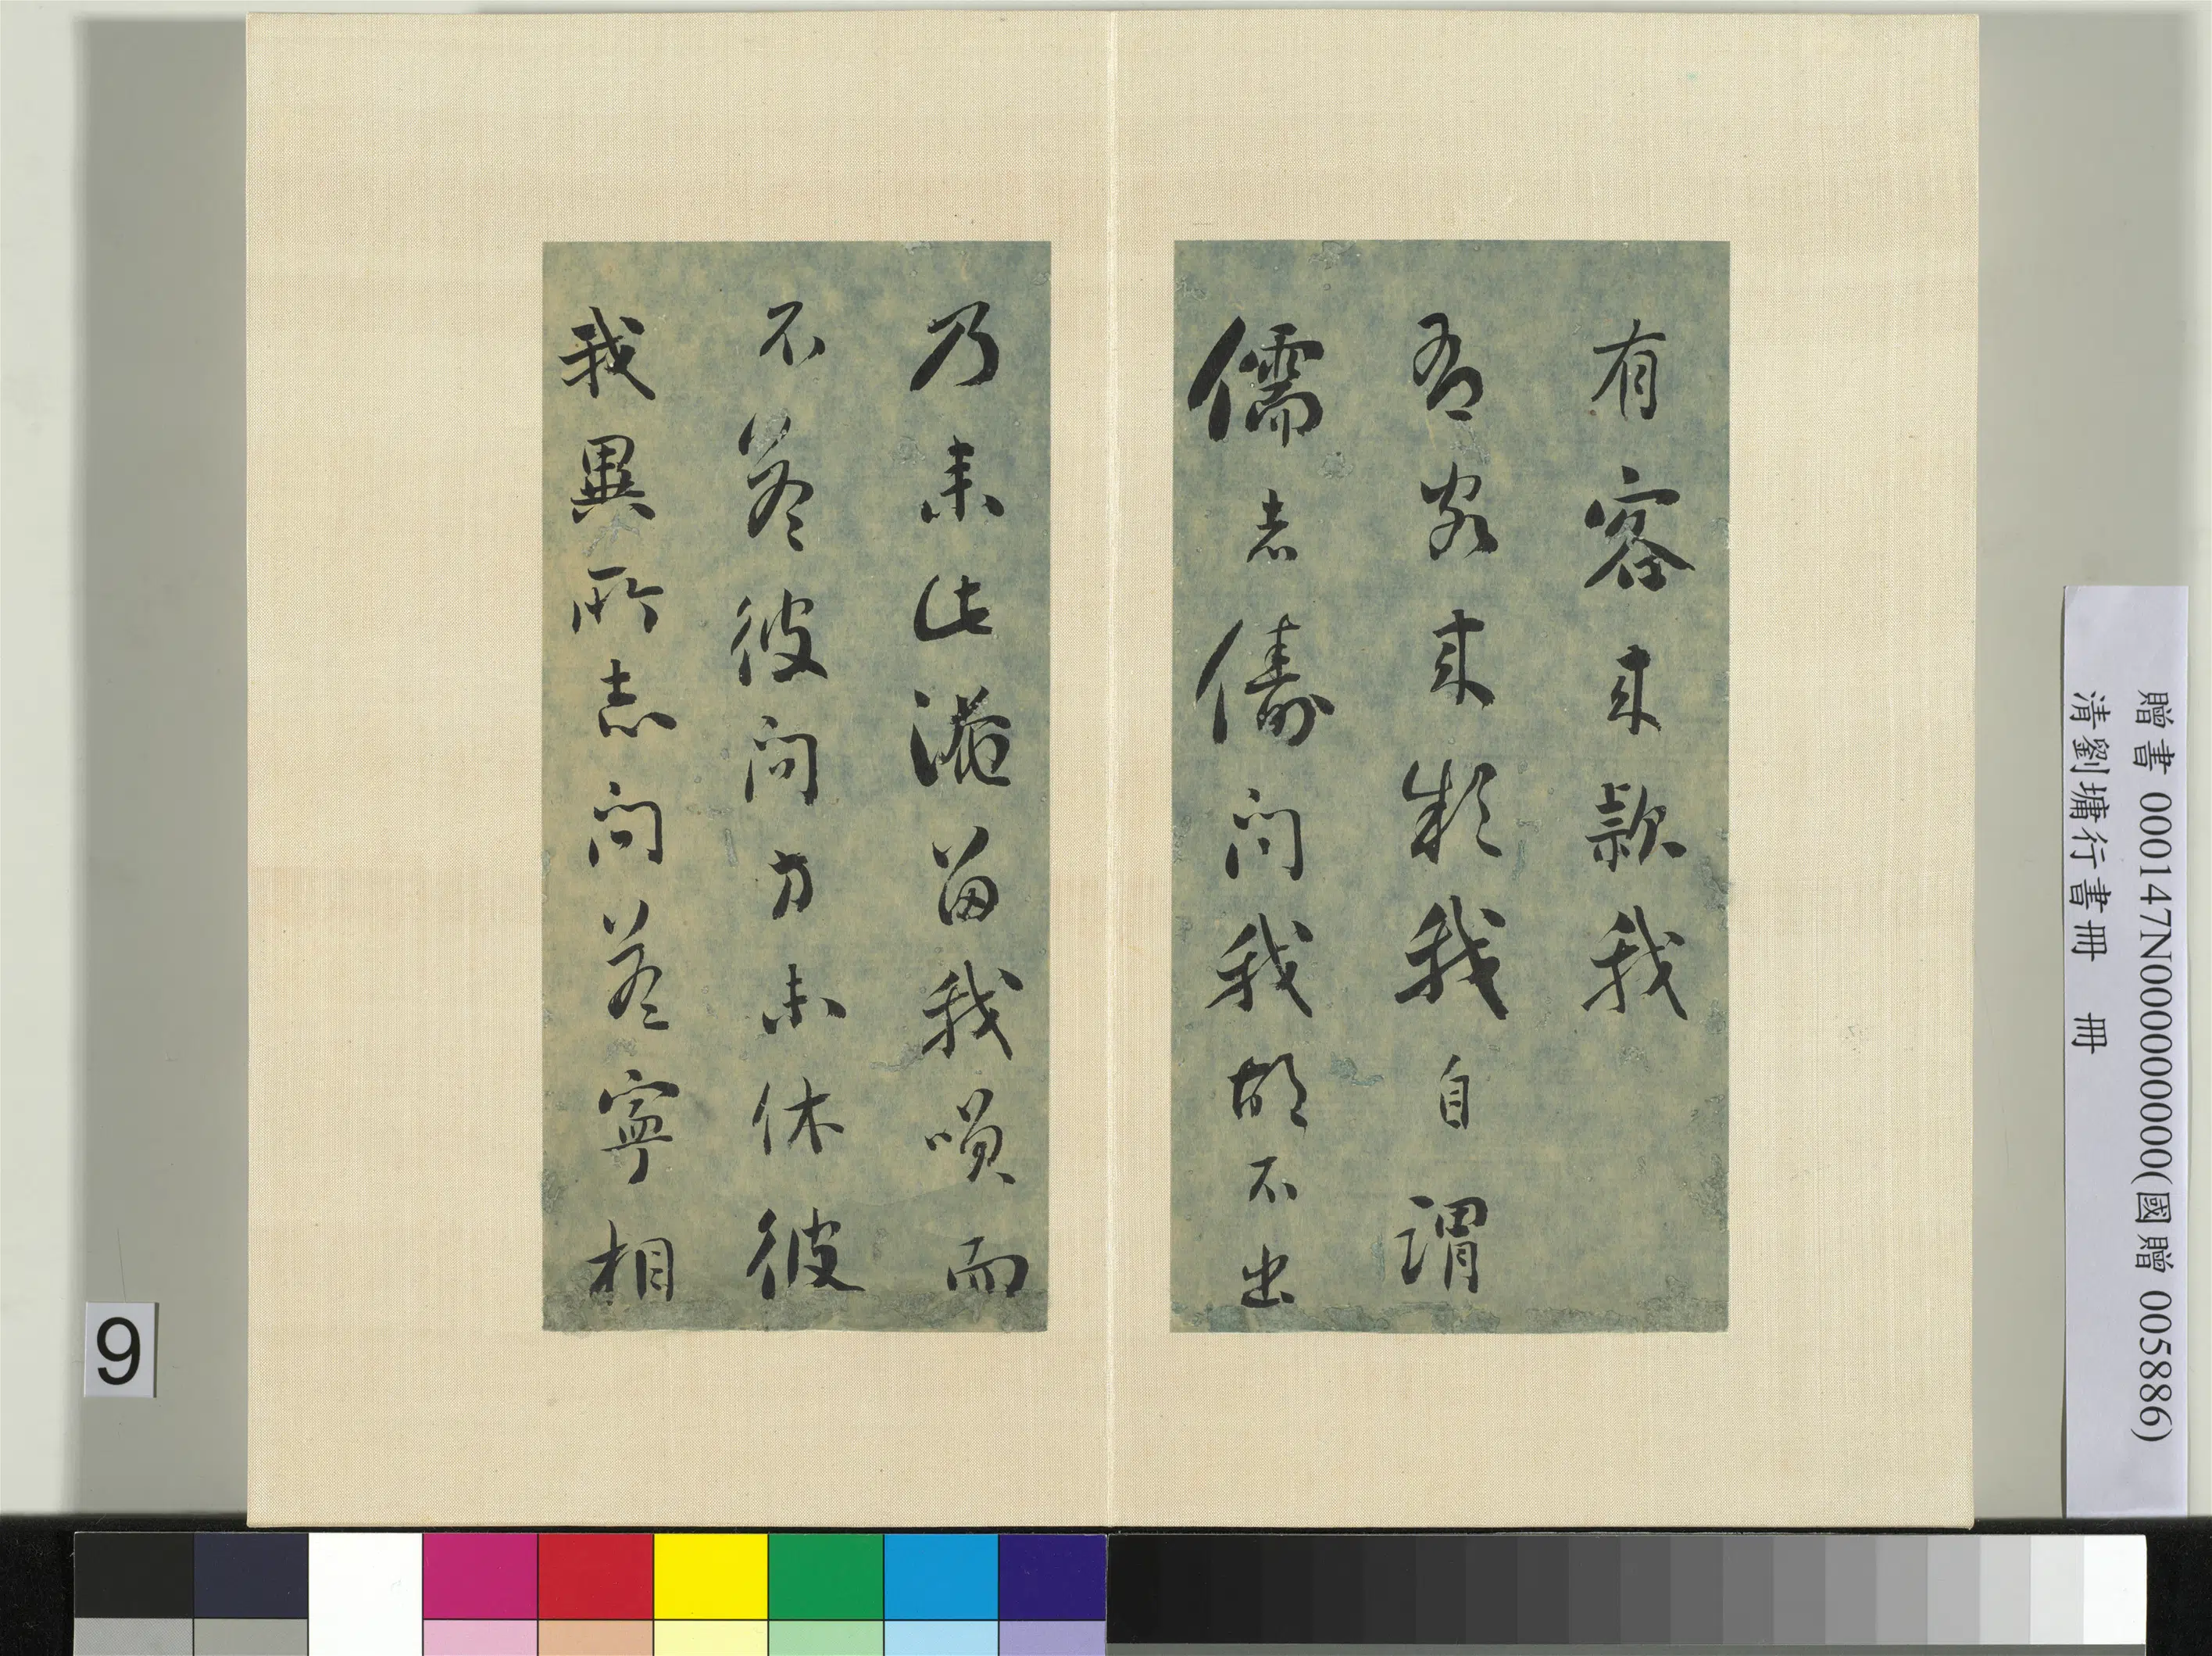 有客来款我
吾来我自謂
儒者儔問我胡不出
乃来此淹留我而
不答彼問方未休彼
我異所志問答寧相
贈書 000147N000000000(國贈 005886)
清劉墉行書冊 冊
9